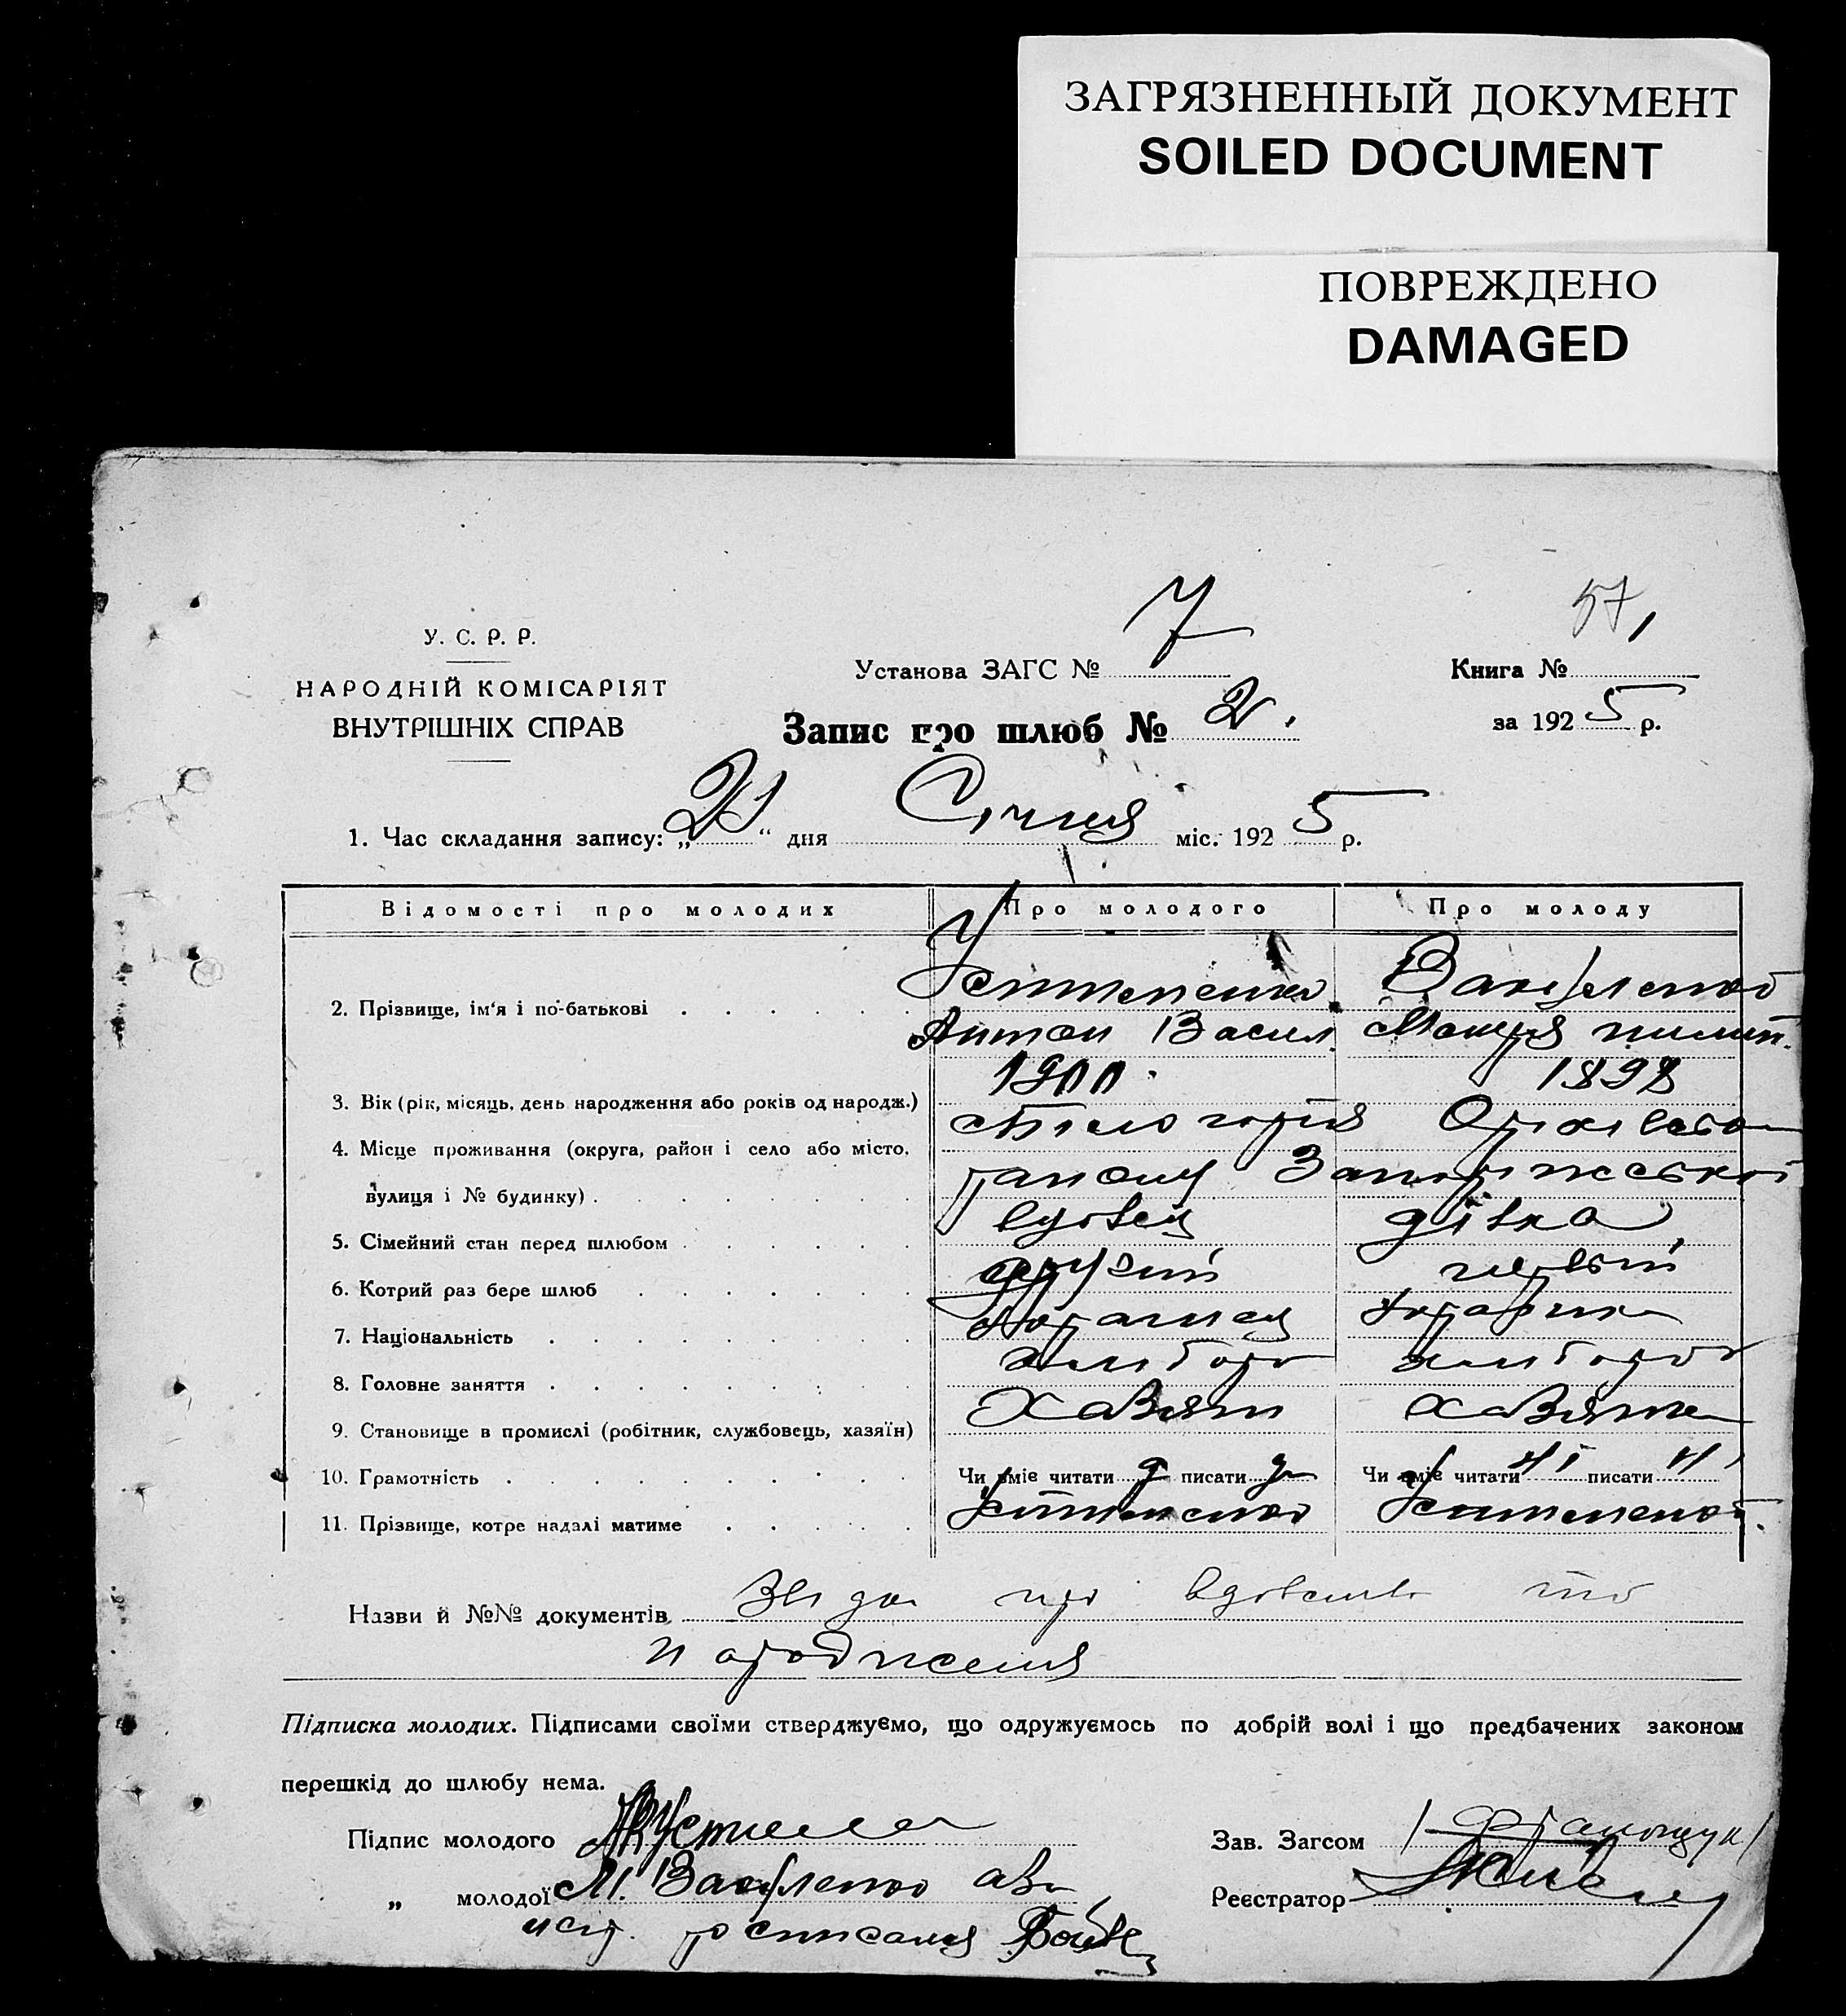 ЗАГРЯЗНЕННЫЙ ДОКУМЕНТ
SOILED DOCUMENT
ПОВРЕЖДЕНО
DAMAGED
У. С. Р. Р.
НАРОДНІЙ КОМІСАРІЯТ
ВНУТРІШНІХ СПРАВ
Установа ЗАГС № 7
57,
Книга №
Запис про шлюб № 2.
за 1925 р.
1. Час складання запису: „21“ дня Січня міс. 1925 р.
Відомості про молодих Про молодого Про молоду
2. Прізвище, ім'я і по-батькові Устименко
Антон Васил. Мотря
3. Вік (рік, місяць, день народження або років од народж.) 1900. 1898
4. Місце проживання (округа, район і село або місто, Білогорʼя Оріхівсько
вулиця і № будинку) району Запоріжської
5. Сімейний стан перед шлюбом вдовец дівка
6. Котрий раз бере шлюб другий первий
7. Національність Украинец Украінка
8. Головне заняття хлібороб хлібороб
9. Становище в промислі (робітник, службовець, хазяїн) Хазяїн Хазяйка
10. Грамотність Чи вміє читати писати Чи вміє читати ні писати
11. Прізвище, котре надалі матиме Устименко Устименко.
Назви й №№ документів про
народження
Підписка молодих. Підписами своїми стверджуємо, що одружуємось по добрій волі і що предбачених законом
перешкід до шлюбу нема.
Підпис молодого Зав. Загсом
„ молодої М. Реєстратор
росписался